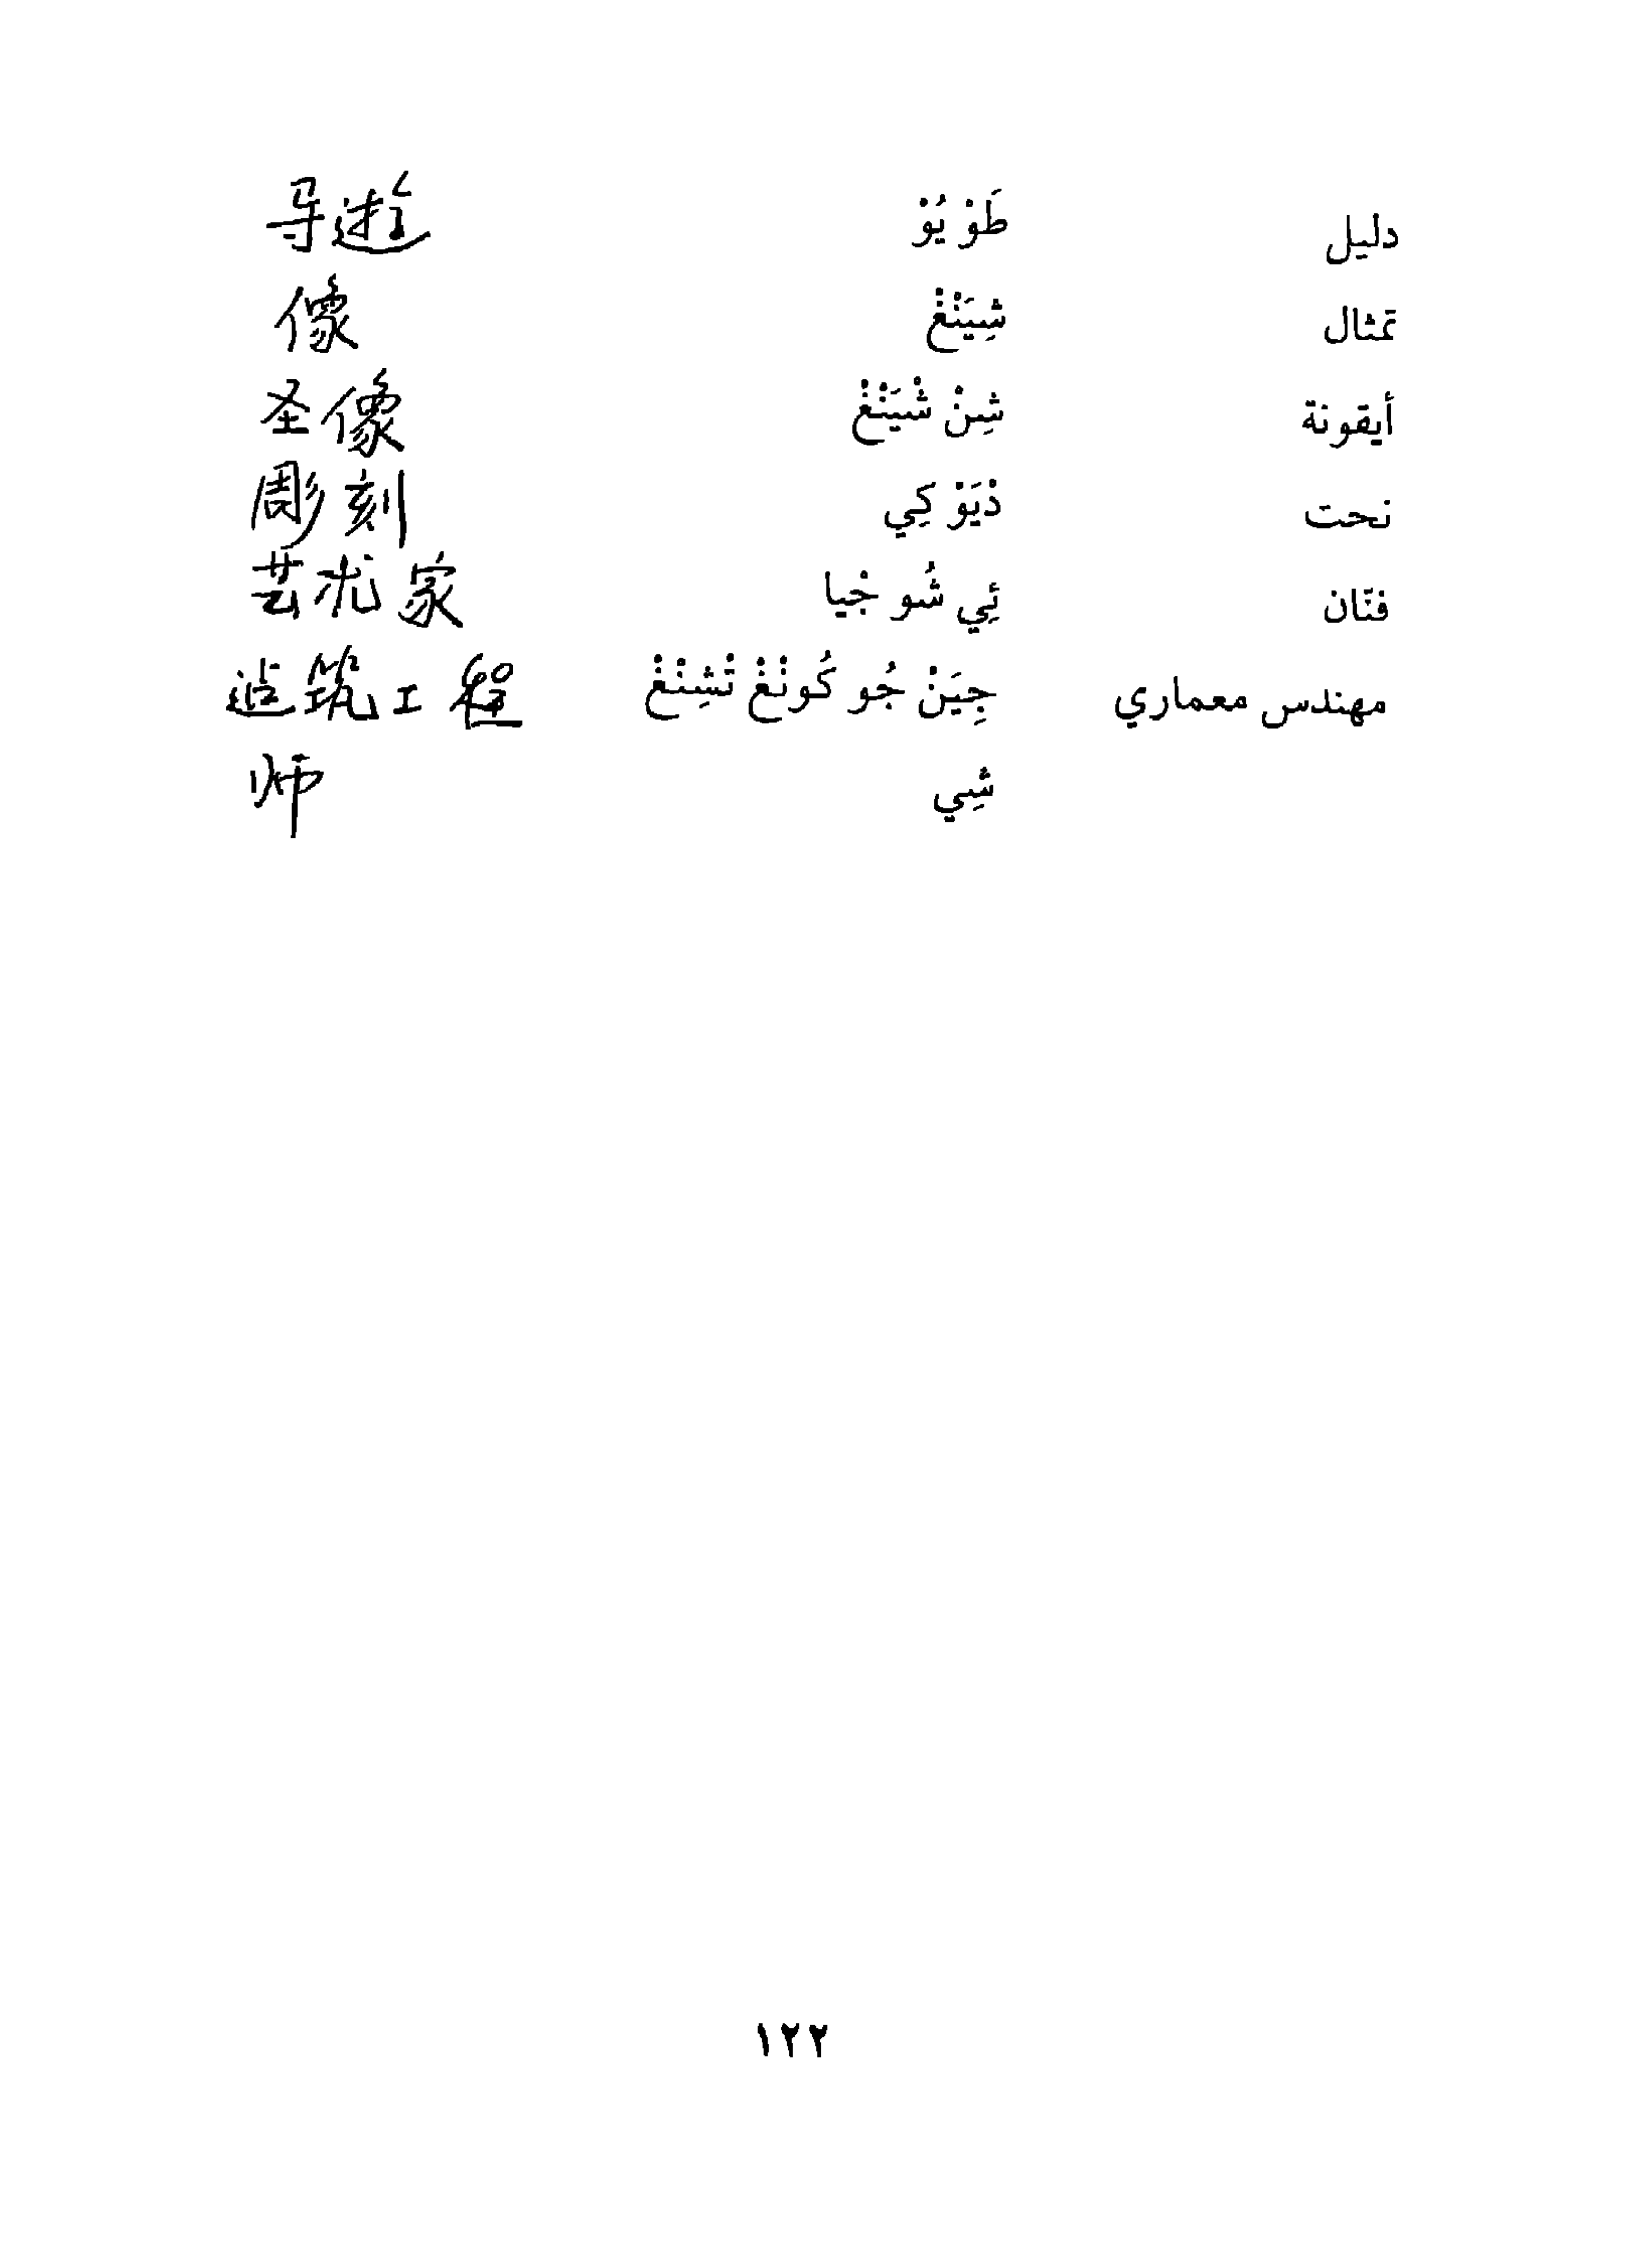 دليل طَوْ يُوْ 导遊
تمثال شِيَنْغْ 像
أيقونة شِنْ شْيَنْغْ 圣像
نحت دْيَوْ كِي 彫刻
فنّان ئِي شُو جْيا 艺术家
مهندس معماري جِيَنْ جُو كُونْغْ تْشِنْغْ 造筑工程
شِي 师
١٢٢